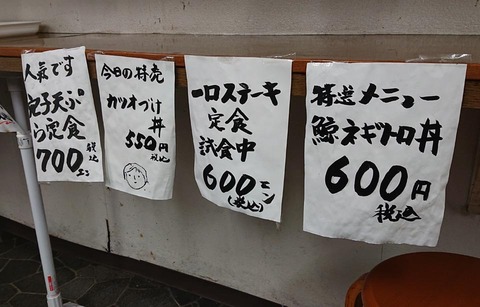 人気です
穴子天ぷ
ら定食
700エン
税込
今日の特売
カツオづけ
丼
550円
税込
一口ステーキ
定食
試食中
600エン
(税込)
特選メニュー
鯨ネギトロ丼
600円
税込